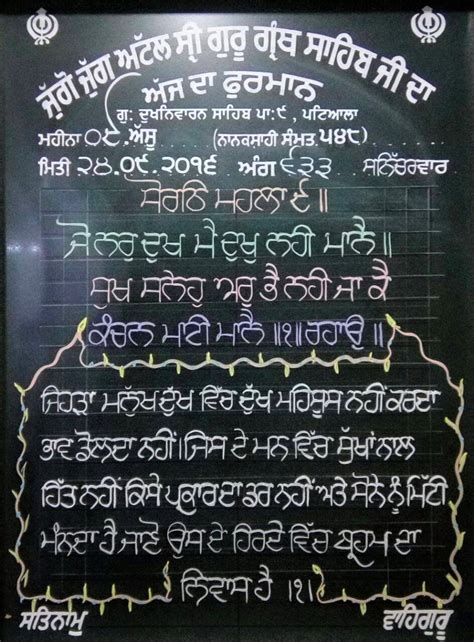 ਜੁੱਗੋ ਜੁੱਗ ਅਟੱਲ ਸ੍ਰੀ ਗੁਰੂ ਗ੍ਰੰਥ ਸਾਹਿਬ ਜੀ ਦਾ
ਅੱਜ ਦਾ ਫੁਰਮਾਨ
ਗੁ: ਦੁਖਨਿਵਾਰਨ ਸਾਹਿਬ ਪਾ:੯ , ਪਟਿਆਲਾ
ਮਹੀਨਾ ੦੮, ਅੱਸੂ (ਨਾਨਕਸਾਹੀ ਸੰਮਤ ੫੪੮)
ਮਿਤੀ ੨੪.੦੯.੨੦੧੬ ਅੰਗ ੬੩੩ ਸਨਿੱਚਰਵਾਰ
ਸੋਰਠਿ ਮਹਲਾ ੯ ॥
ਜੋ ਨਰੁ ਦੁਖ ਮੈ ਦੁਖੁ ਨਹੀ ਮਾਨੈ ॥
ਸੁਖ ਸਨੇਹੁ ਅਰੁ ਭੈ ਨਹੀ ਜਾ ਕੈ
ਕੰਚਨ ਮਾਟੀ ਮਾਨੈ ॥੧॥ ਰਹਾਉ ॥
ਜਿਹੜਾ ਮਨੁੱਖ ਦੁੱਖ ਵਿੱਚ ਦੁੱਖ ਮਹਿਸੂਸ ਨਹੀਂ ਕਰਦਾ
ਭਾਵ ਡੋਲਦਾ ਨਹੀਂ। ਜਿਸ ਦੇ ਮਨ ਵਿੱਚ ਸੁੱਖਾਂ ਨਾਲ
ਹਿੱਤ ਨਹੀਂ ਕਿਸੇ ਪ੍ਰਕਾਰ ਦਾ ਡਰ ਨਹੀਂ ਅਤੇ ਸੋਨੇ ਨੂੰ ਮਿੱਟੀ
ਮੰਨਦਾ ਹੈ ਜਾਣੋ ਉਸ ਦੇ ਹਿਰਦੇ ਵਿੱਚ ਬ੍ਰਹਮ ਦਾ
ਨਿਵਾਸ ਹੈ ।੧।
ਸਤਿਨਾਮੁ ਵਾਹਿਗੁਰੂ